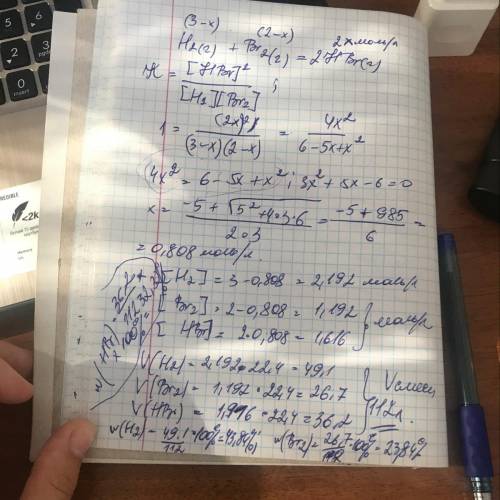 (3-x) (2-x) 2x моль/л
H₂(г) + Br₂(г) = 2HBr(г)
K = [HBr]² / [H₂][Br₂] ;
1 = (2x)² / (3-x)(2-x) = 4x² / 6-5x+x²
4x² = 6-5x+x² ; 3x²+5x-6=0
x = -5+√5²+4·3·6 / 2·3 = -5+9,85 / 6 =
= 0,808 моль/л
[H₂] = 3-0,808 = 2,192 моль/л
[Br₂] = 2-0,808 = 1,192
[HBr] = 2·0,808 = 1,616 } моль/л
V(H₂) = 2,192·22,4 = 49,1
V(Br₂) = 1,192·22,4 = 26,7
V(HBr) = 1,616·22,4 = 36,2 } Vсмеси 112л
w(H₂) = 49,1/112·100% = 43,84%
w(Br₂) = 26,7/112·100% = 23,84%
<2k